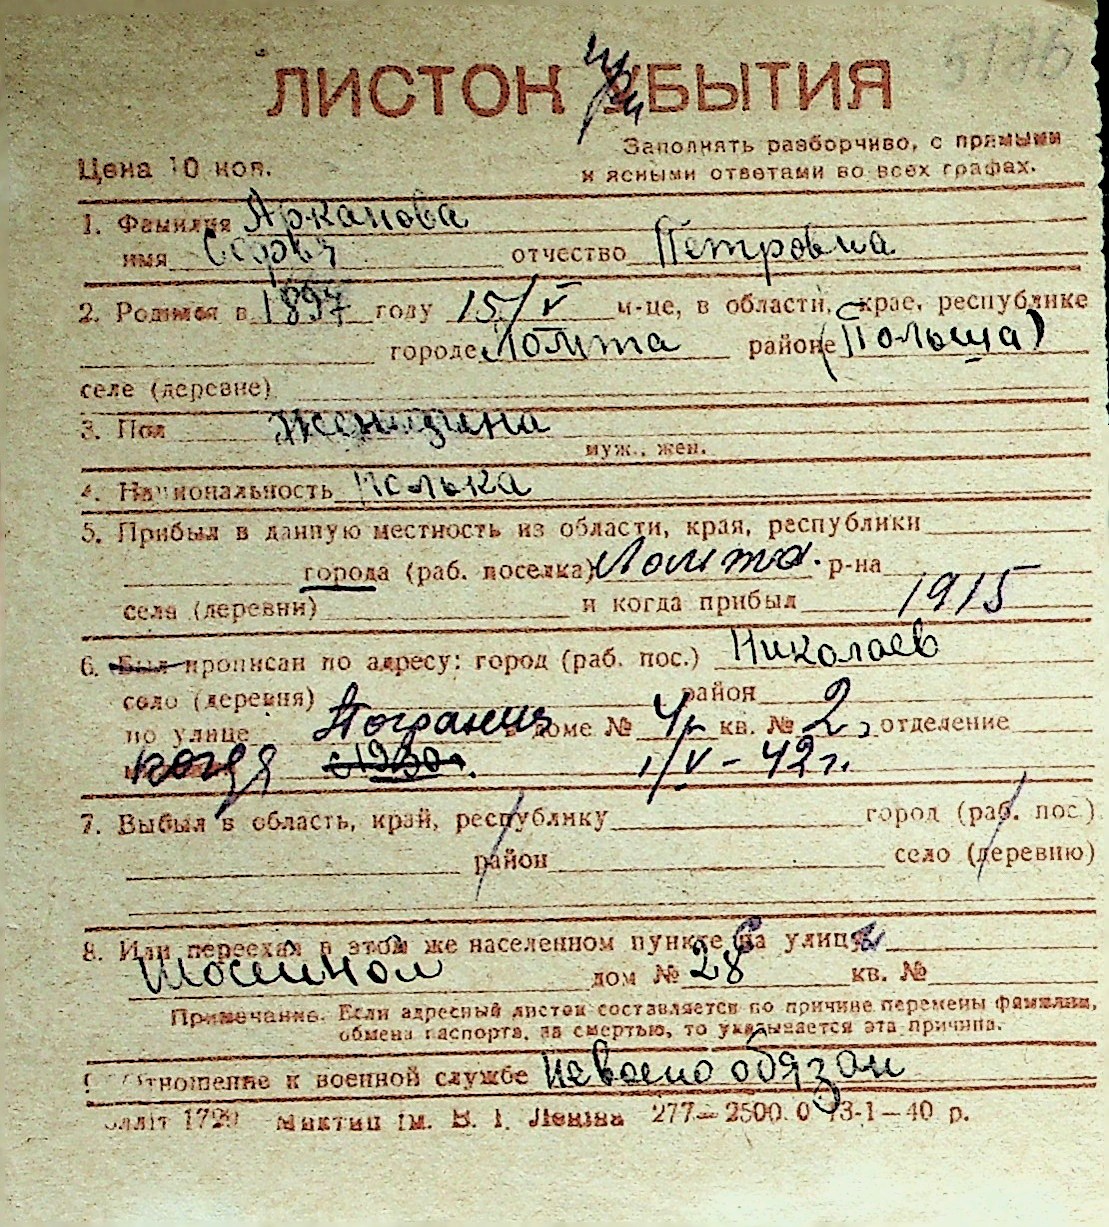 5176
при
ЛИСТОК УБЫТИЯ
Заполнять разборчиво, с прямыми
Цена 10 коп. и ясными ответами во всех графах.
1. Фамилия Арканова
имя Софья отчество Петровна
2. Родился в 1897 году 15/V м-це, в области, крае, республике
городе Ломжа районе (Польша)
селе (деревне)
3. Пол Женщина
муж., жен.
4. Национальность полька
5. Прибыл в данную местность из области, края, республики
города (раб. поселка) Ломжа. р-на
села (деревни) и когда прибыл 1915
6. Был прописан по адресу: город (раб. пос.) Николаев
село (деревня) район
по улице Погранич доме № 4 кв. № 2, отделение
когда с 1930 г. 1/V – 42 г.
7. Выбыл в область, край, республику город (раб. пос.)
район село (деревню)
8. Или переехал в этом же населенном пункте с улицы
дом № 28 кв. №
Примечание. Если адресный листок составляется по причине перемены фамилии,
обмена паспорта, за смертью, то указывается эта причина.
Отношение к военной службе невоенообязан
ім. В. І. Леніна 277—2500. 0 73-1—40 р.